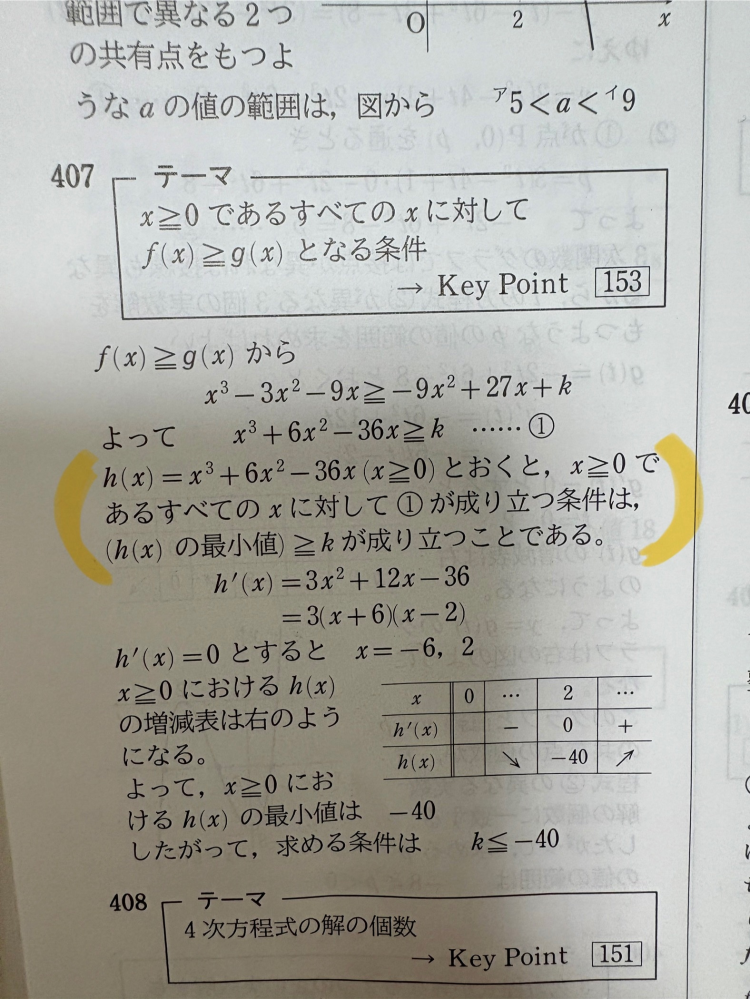 範囲で異なる2つ
の共有点をもつよ
O 2 x
うな a の値の範囲は，図から ア5<a<イ9
407 テーマ
x≧0 であるすべての x に対して
f(x)≧g(x) となる条件
→ Key Point 153
f(x)≧g(x) から
x³−3x²−9x≧−9x²+27x+k
よって x³+6x²−36x≧k ……①
h(x)=x³+6x²−36x (x≧0) とおくと，x≧0 で
あるすべての x に対して ① が成り立つ条件は，
(h(x) の最小値)≧k が成り立つことである。
h′(x)=3x²+12x−36
=3(x+6)(x−2)
h′(x)=0 とすると x=−6，2
x≧0 における h(x)
の増減表は右のよう
になる。
x 0 … 2 …
h′(x) − 0 +
h(x) ↘ −40 ↗
よって，x≧0 にお
ける h(x) の最小値は −40
したがって，求める条件は k≦−40
408 テーマ
4次方程式の解の個数
→ Key Point 151